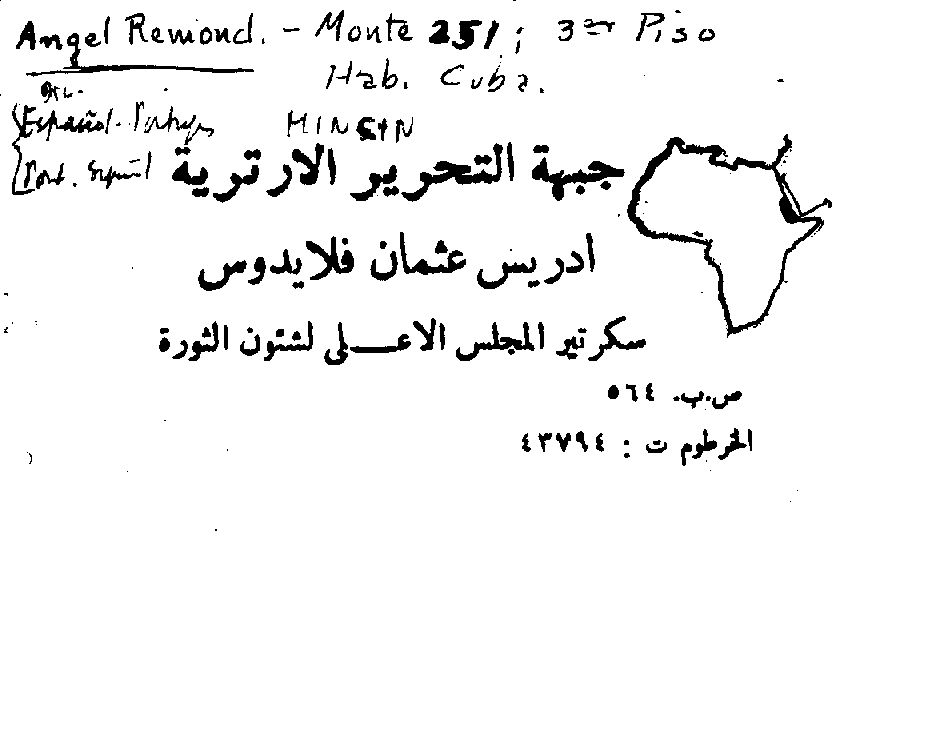 Angel Remond. - Monte 251; 3er Piso
Hab. Cuba.
Español - Portugu
Port. Español
MINSIN
جبهة التحرير الارترية
ادريس عثمان قلايدوس
سكرتير المجلس الاعلى لشئون الثورة
ص.ب. ٥٦٤
الخرطوم ت : ٤٣٧٩٤